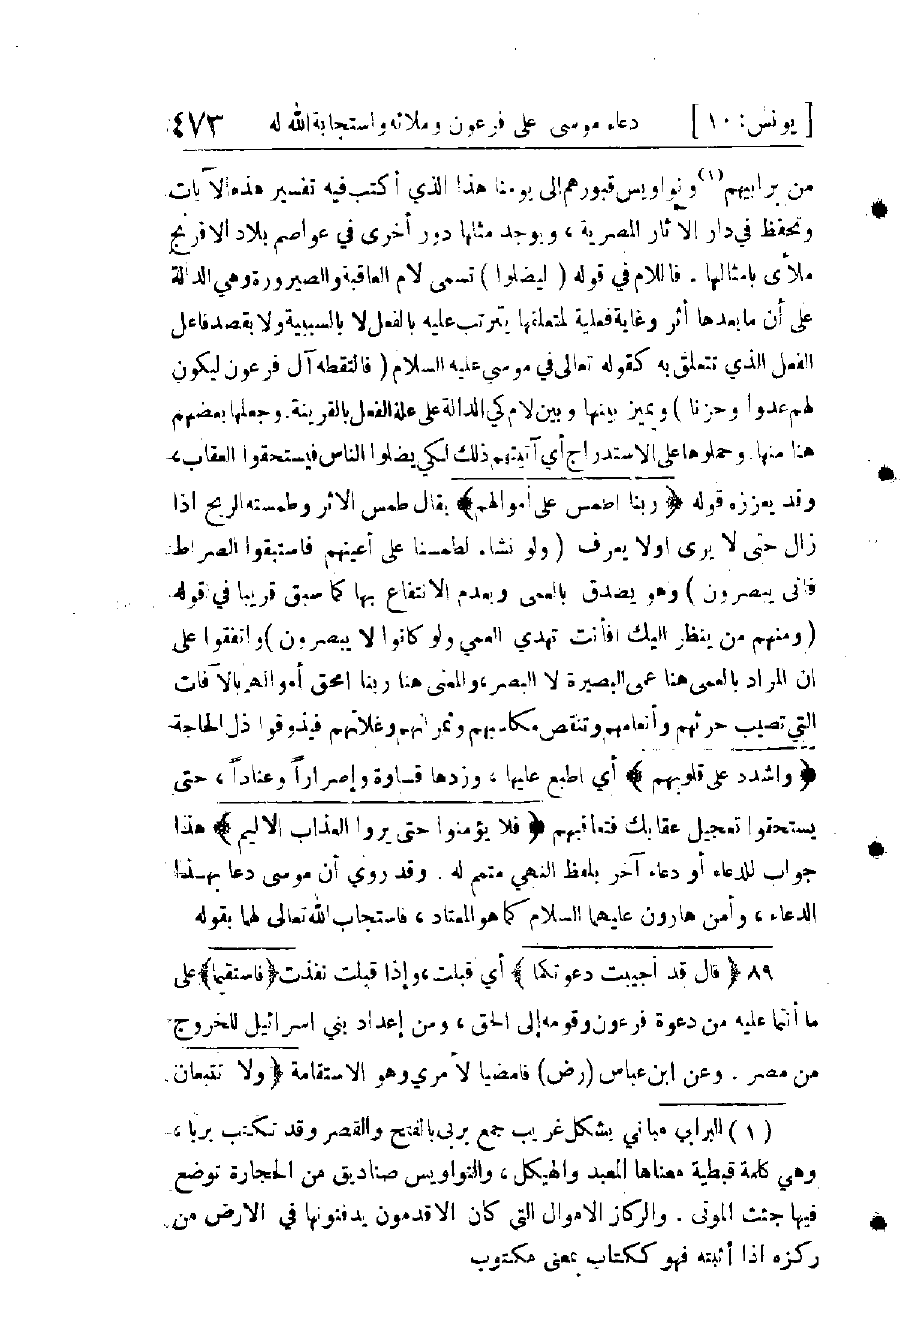 [ يونس: ١٠ ] دعاء موسى على فرعون وملائه واستجابة الله له ٤٧٣
من برابيهم (١) ونواويس قبورهم الى يومنا هذا الذي أكتب فيه تفسير هذه الآيات
وتحفظ في دار الآثار المصرية ، ويوجد مثلها دور أخرى في عواصم بلاد الافرنج
ملأى بامثالها . فاللام في قوله ( ليضلوا ) تسمى لام العاقبة والصيرورة وهي الدالة
على أن مابعدها أثر وغاية فعلية لمتعلقها يترتب عليه بالفعل لا بالسببية ولا بقصد فاعل
الفعل الذي تتعلق به كقوله تعالى في موسى عليه السلام ( فالتقطه آل فرعون ليكون
لهم عدوا وحزنا ) ويميز بينها وبين لام كي الدالة على علة الفعل بالقرينة . وجعلها بعضهم
هنا منها. وحملوها على الاستدراج أي آتيتهم ذلك لكي يضلوا الناس فيستحقوا العقاب،
وقد يعززه قوله ﴿ ربنا اطمس على أموالهم ﴾ يقال طمس الاثر وطمسته الريح اذا
زال حتى لا يرى اولا يعرف ( ولو نشاء لطمسنا على أعينهم فاستبقوا الصراط
فانى يبصرون ) وهو يصدق بالعمى وبعدم الانتفاع بها كما سبق قريبا في قوله
( ومنهم من ينظر اليك افأنت تهدي العمي ولو كانوا لا يبصرون ) واتفقوا على
ان المراد بالعمى هنا عمى البصيرة لا البصر، والمعنى هنا ربنا امحق أموالهم بالآفات
التي تصيب حرثهم وأنعامهم وتنقص مكاسبهم وثمراتهم وغلاتهم فيذوقوا ذل الحاجة
﴿ واشدد على قلوبهم ﴾ أي اطبع عليها ، وزدها قساوة وإصراراً وعناداً ، حتى
يستحقوا تعجيل عقابك فتعاقبهم ﴿ فلا يؤمنوا حتى يروا العذاب الاليم ﴾ هذا
جواب للدعاء أو دعاء آخر بلفظ النهي متمم له . وقد روي أن موسى دعا بهذا
الدعاء ، وأمن هارون عليهما السلام كما هو المعتاد ، فاستجاب الله تعالى لهما بقوله
٨٩ ﴿ قال قد أجيبت دعوتكما ﴾ أي قبلت، وإذا قبلت نفذت ﴿فاستقيما﴾ على
ما أنتما عليه من دعوة فرعون وقومه إلى الحق ، ومن إعداد بني اسرائيل للخروج
من مصر . وعن ابن عباس (رض) فامضيا لأمري وهو الاستقامة ﴿ ولا تتبعان
( ١ ) البرابي مباني بشكل غريب جمع بربى بالفتح والقصر وقد تكتب بربا ،
وهي كلمة قبطية معناها المعبد والهيكل ، والنواويس صناديق من الحجارة توضع
فيها جثث الموتى . والركاز الاموال التي كان الاقدمون يدفنونها في الارض من
ركزه اذا أثبته فهو ككتاب بمعنى مكتوب